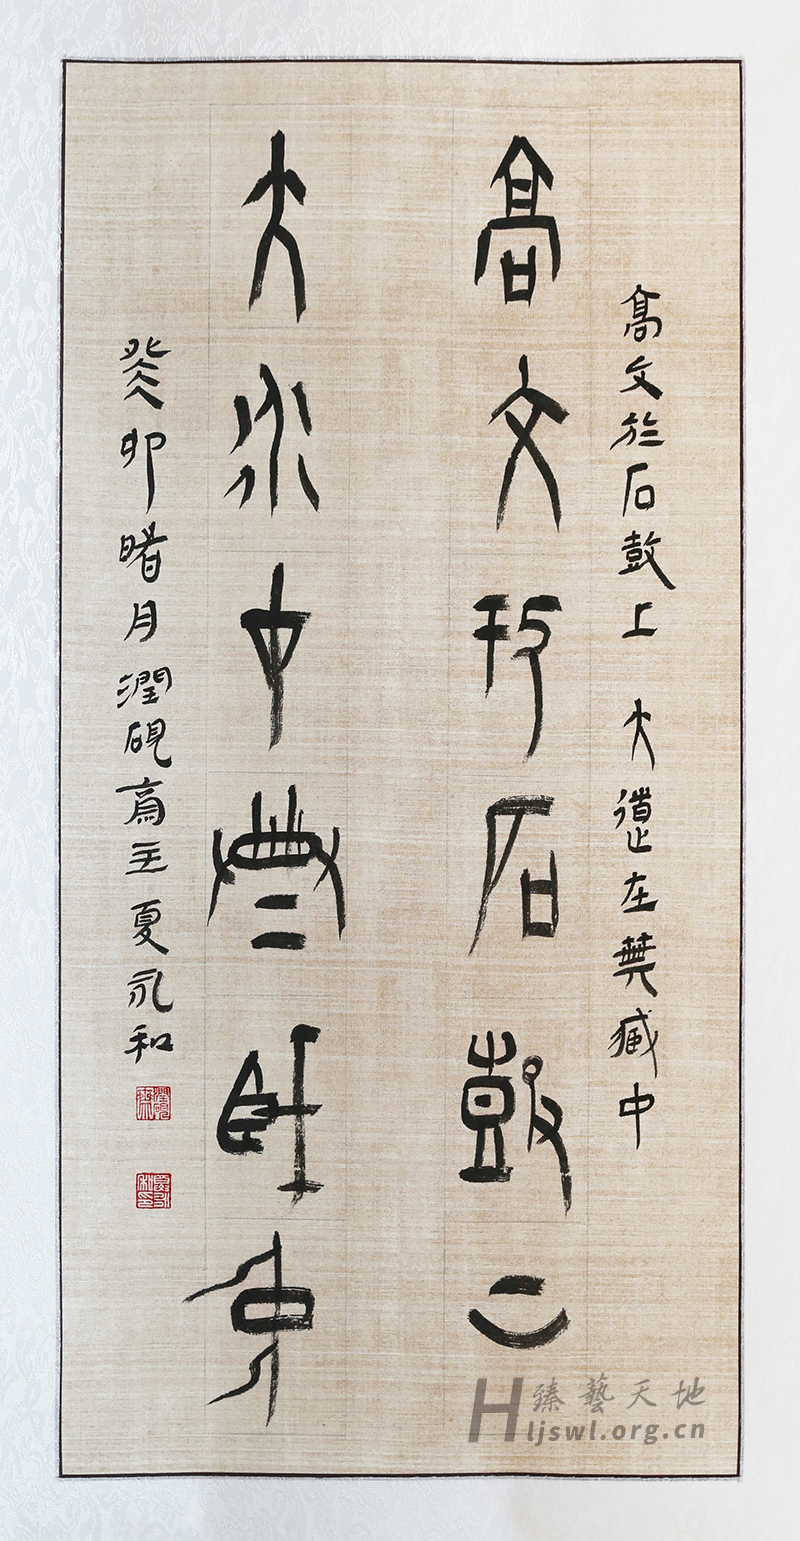 高文於石鼓上 大道在無臧中
高文於石鼓上
大道在無臧中
癸卯暏月潤硯齋主夏永和
臻藝天地
Hljswl.org.cn